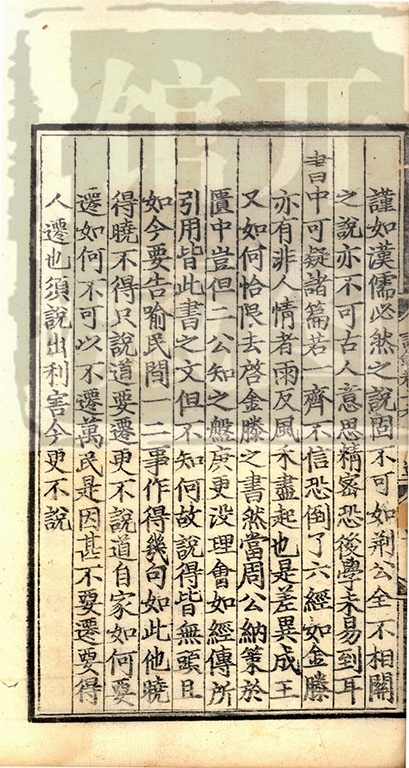 謹如漢儒必然之說固不可如荆公全不相關
之說亦不可古人意思精密恐後學未易到耳
書中可疑諸篇若一齊不信恐倒了六經如金縢
亦有非人情者雨反風禾盡起也是差異成王
又如何恰限去啓金縢之書然當周公納策於
匱中豈但二公知之盤庚更没理會如經傳所
引用皆此書之文但不知何故說得皆無頭且
如今要告喻民間一二事作得幾句如此他曉
得曉不得只說道要遷更不說道自家如何要
遷如何不可以不遷萬民是因甚不要遷要得
人遷也須說出利害今更不說